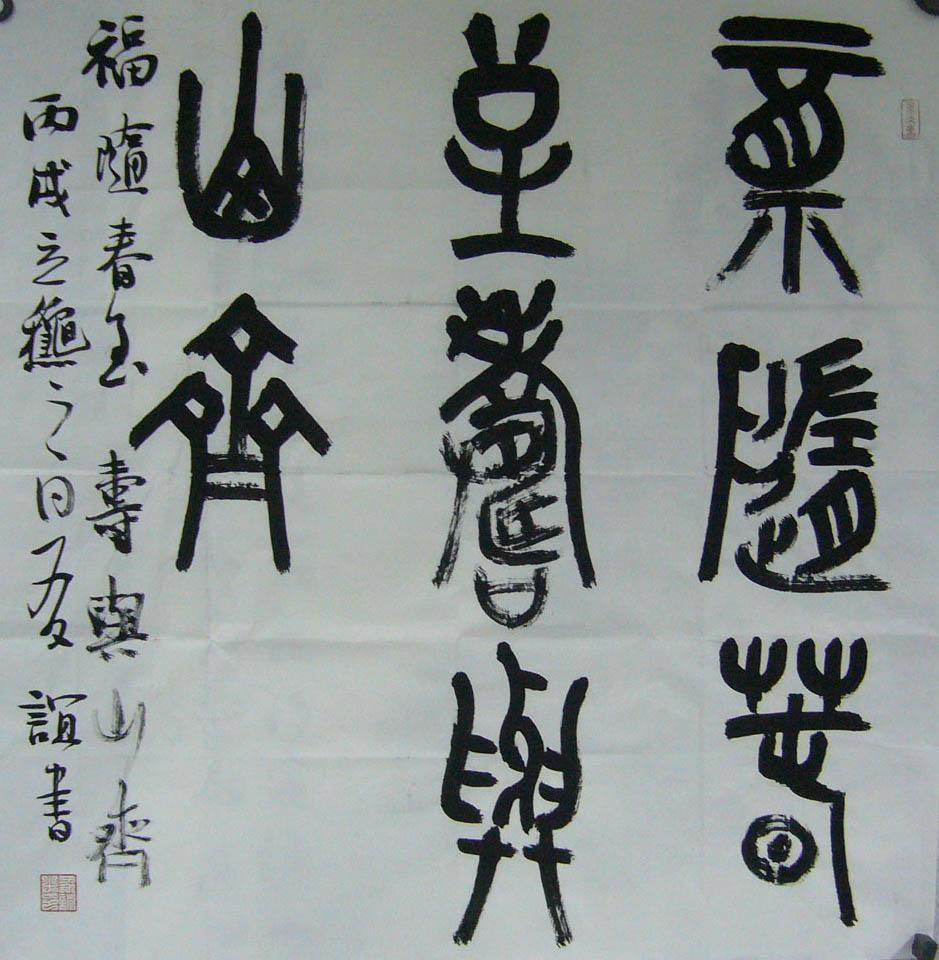 福隨春
至壽與
山齊
福隨春至壽與山齊
丙戌立龝之日誼書